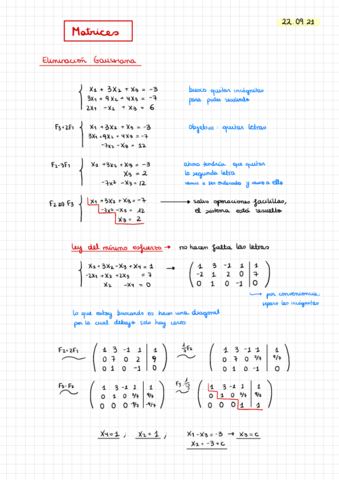 22 09 21
Matrices
Eliminación Gaussiana
x1 + 3x2 + x3 = -3
3x1 + 9x2 + 4x3 = -7
2x1 - x2 + x3 = 6
busco quitar incógnitas
para poder resolverlo
F3+2F1
x1 + 3x2 + x3 = -3
3x1 + 9x2 + 4x3 = -7
-7x2 - x3 = 12
Objetivo: quitar letras
F2-3F1
x1 + 3x2 + x3 = -3
x3 = 2
-7x2 - x3 = 12
ahora tendría que quitar
la segunda letra
vamos a ser ordenados y vamos a ello
F2 ⇔ F3
x1 + 3x2 + x3 = -7
-7x2 - x3 = 12
x3 = 2
→ salvo operaciones facilillas,
el sistema está resuelto
Ley del mínimo esfuerzo → no hacen falta las letras
x1 + 3x2 - x3 + x4 = 1
-2x1 + x2 + 2x3 = 7
x2 - x4 = 0
→
1 3 -1 1 | 1
-2 1 2 0 | 7
0 1 0 -1 | 0
por conveniencia
separo las incógnitas
lo que estoy buscando es hacer una diagonal
por la cual debajo solo hay ceros
F2+2F1
1 3 -1 1 | 1
0 7 0 2 | 9
0 1 0 -1 | 0
1/7 F2
1 3 -1 1 | 1
0 1 0 2/7 | 9/7
0 1 0 -1 | 0
F3-F2
1 3 -1 1 | 1
0 1 0 2/7 | 9/7
0 0 0 -9/7 | -9/7
1 3 -1 1 | 1
0 1 0 2/7 | 9/7
0 0 0 1 | 1
x4=1 ; x2=1 ; x1-x3=-3 → x3=c
x1=-3+c